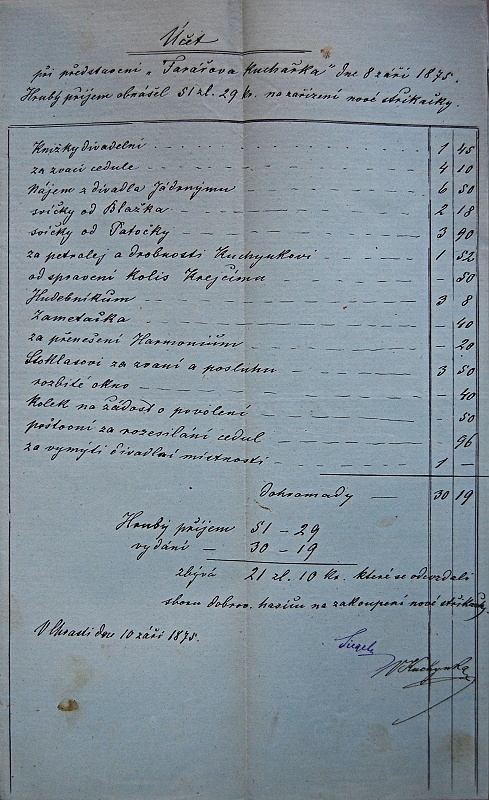 Účet
při představení „Farářova Kuchařka" dne 8 září 1875.
Hrubý příjem obnášel 51 zl. 29 kr. na zařízení nové stříkačky.
Knížky divadelní 1 45
za zvací cedule 4 10
Nájem z divadla Jádrnýmu 6 50
svíčky od Blažka 2 18
svíčky od Patočky 3 90
za petrolej a drobnosti Kuchynkovi 1 52
od spravení Kolis Krejčímu 50
Hudebníkům 3 8
Zametačka 40
za přenešení Harmonium 20
Stoklasovi za zvaní a posluhu 3 50
rozbité okno 40
Kolek na žádost o povolení 50
poštovní za rozesílání cedul 96
za vymytí divadlní místnosti 1 —
dohromady — 30 19
Hrubý příjem 51 – 29
vydání — 30 – 19
zbývá 21 zl. 10 kr. které se odevzdali
sboru dobrov. hasičů na zakoupení nové stříkačky.
V Chrasti dne 10 září 1875.
Siegel
VKuchynka